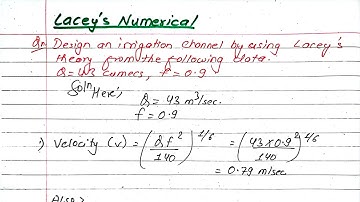 Lacey's Numerical
Qn Design an irrigation channel by using Lacey's
theory from the following data.
Q = 43 cumecs, f = 0.9
Soln Here,
Q = 43 m³/sec.
f = 0.9
i) Velocity (v) = (Qf²/140)^1/6 = (43×0.9²/140)^1/6
= 0.79 m/sec
Also,